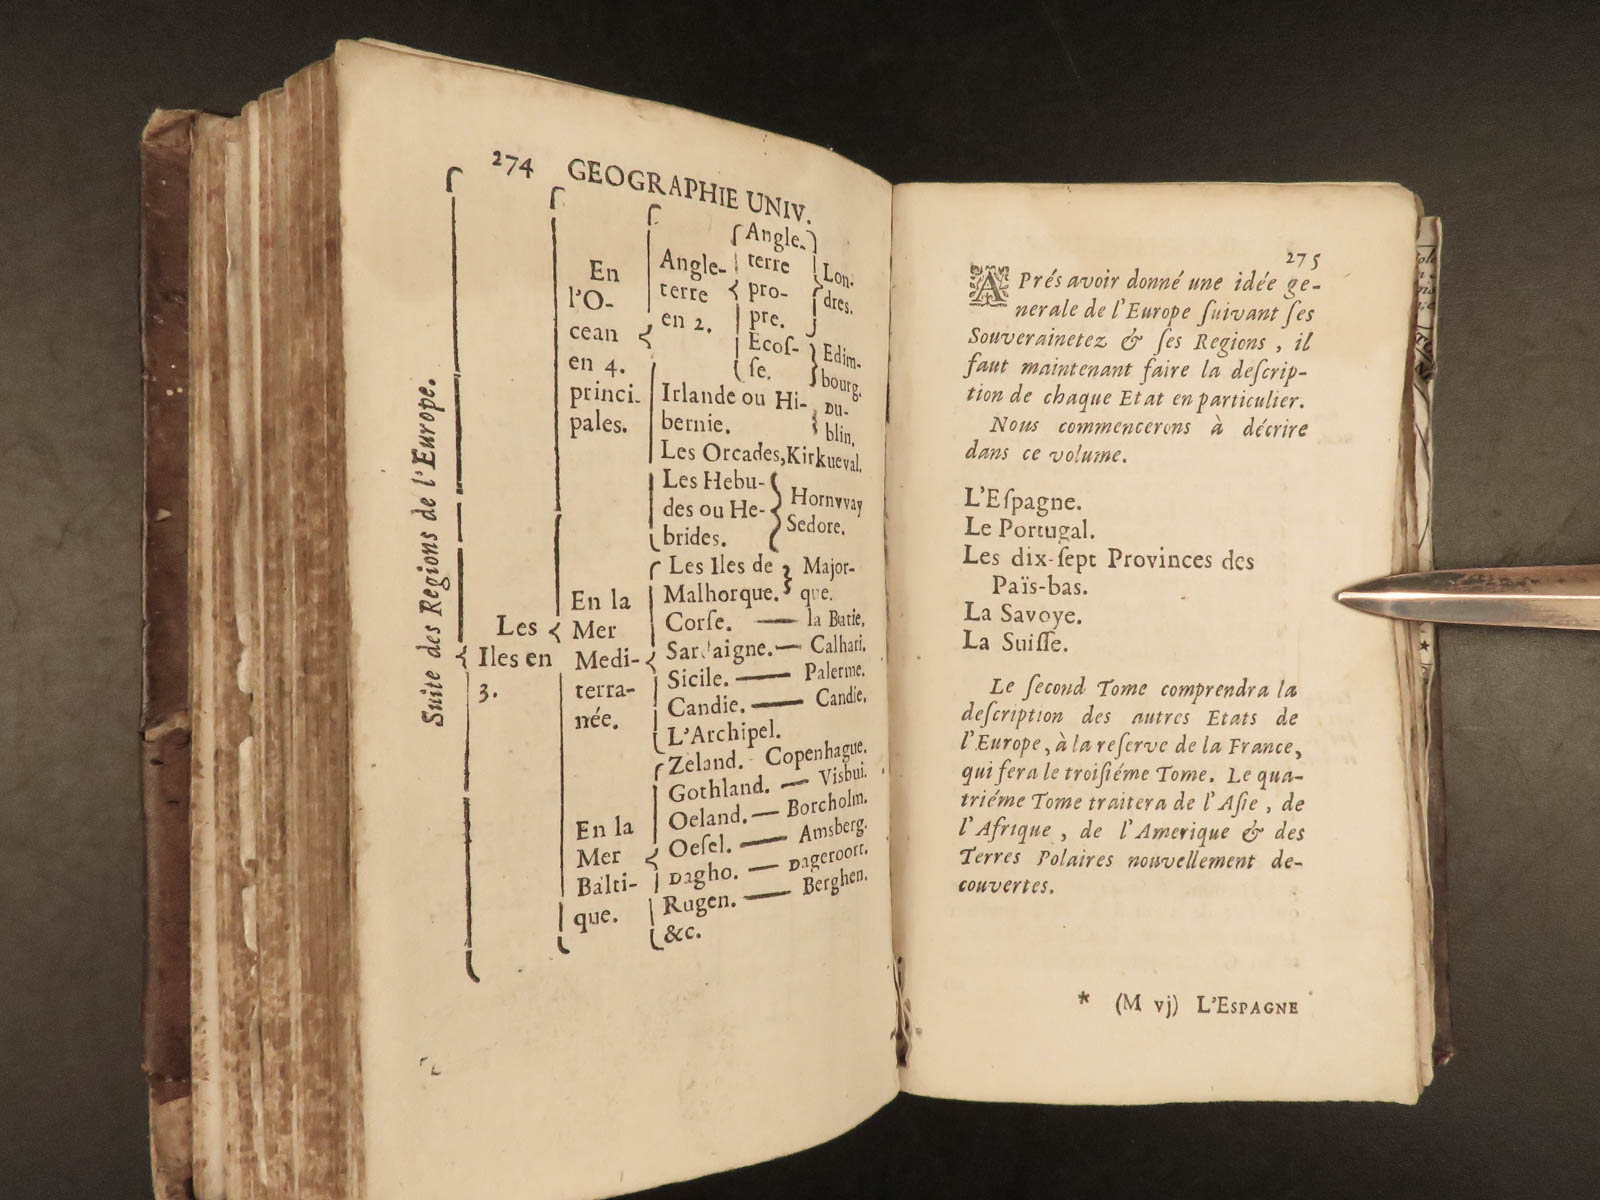 274 GEOGRAPHIE UNIV.
Suite des Regions de l'Europe.
Les
Iles en
3.
En
l'O-
cean
en 4.
princi-
pales.
Angle-
terre
en 2.
Angle-
terre
pro-
pre.
Lon-
dres.
Ecoſ-
ſe.
Edim-
bourg.
Irlande ou Hi-
bernie.
Du-
blin.
Les Orcades, Kirkueval.
Les Hebu-
des ou He-
brides.
Hornvvay
Sedore.
En la
Mer
Medi-
terra-
née.
Les Iles de
Malhorque.
Major-
que.
Corſe. — la Batie.
Sardaigne. — Calhari.
Sicile. — Palerme.
Candie. — Candie.
L'Archipel.
En la
Mer
Balti-
que.
Zeland. Copenhague.
Gothland. — Visbui.
Oeland. — Borcholm.
Oeſel. — Amsberg.
Dagho. — Dageroort.
Rugen. — Berghen.
&c.
275
APrés avoir donné une idée ge-
nerale de l'Europe ſuivant ſes
Souverainetez & ſes Regions, il
faut maintenant faire la deſcrip-
tion de chaque Etat en particulier.
Nous commencerons à décrire
dans ce volume.
L'Eſpagne.
Le Portugal.
Les dix-ſept Provinces des
Païs-bas.
La Savoye.
La Suiſſe.
Le ſecond Tome comprendra la
deſcription des autres Etats de
l'Europe, à la reſerve de la France,
qui fera le troiſiéme Tome. Le qua-
triéme Tome traitera de l'Aſie, de
l'Afrique, de l'Amerique & des
Terres Polaires nouvellement de-
couvertes.
* (M vj) L'ESPAGNE